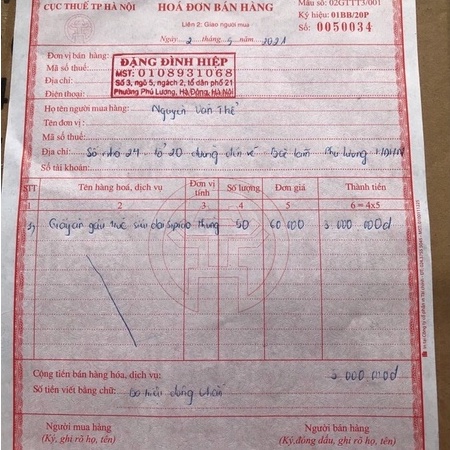 CỤC THUẾ TP HÀ NỘI
HOÁ ĐƠN BÁN HÀNG
Mẫu số: 02GTTT3/001
Liên 2: Giao người mua
Ký hiệu: 01BB/20P
Số: 0050034
Ngày 2 tháng 5 năm 2021
Đơn vị bán hàng:
Mã số thuế:
Địa chỉ:
Điện thoại:
ĐẶNG ĐÌNH HIỆP
MST: 0108931068
Số 3, ngõ 5, ngách 2, tổ dân phố 21
Phường Phú Lương, Hà Đông, Hà Nội
Họ tên người mua hàng: Nguyễn Văn Thể
Tên đơn vị:
Mã số thuế:
Địa chỉ: Số nhà 24 tổ 20 đường Phú Lương
Số tài khoản:
STT Tên hàng hoá, dịch vụ Đơn vị tính Số lượng Đơn giá Thành tiền
1 2 3 4 5 6 = 4x5
Giấy ăn gấu trúc Thùng 50 60 000 3 000 000đ
Cộng tiền bán hàng hóa, dịch vụ: 3 000 000đ
Số tiền viết bằng chữ: Ba triệu đồng chẵn
Người mua hàng
(Ký, ghi rõ họ, tên)
Người bán hàng
(Ký, đóng dấu, ghi rõ họ, tên)